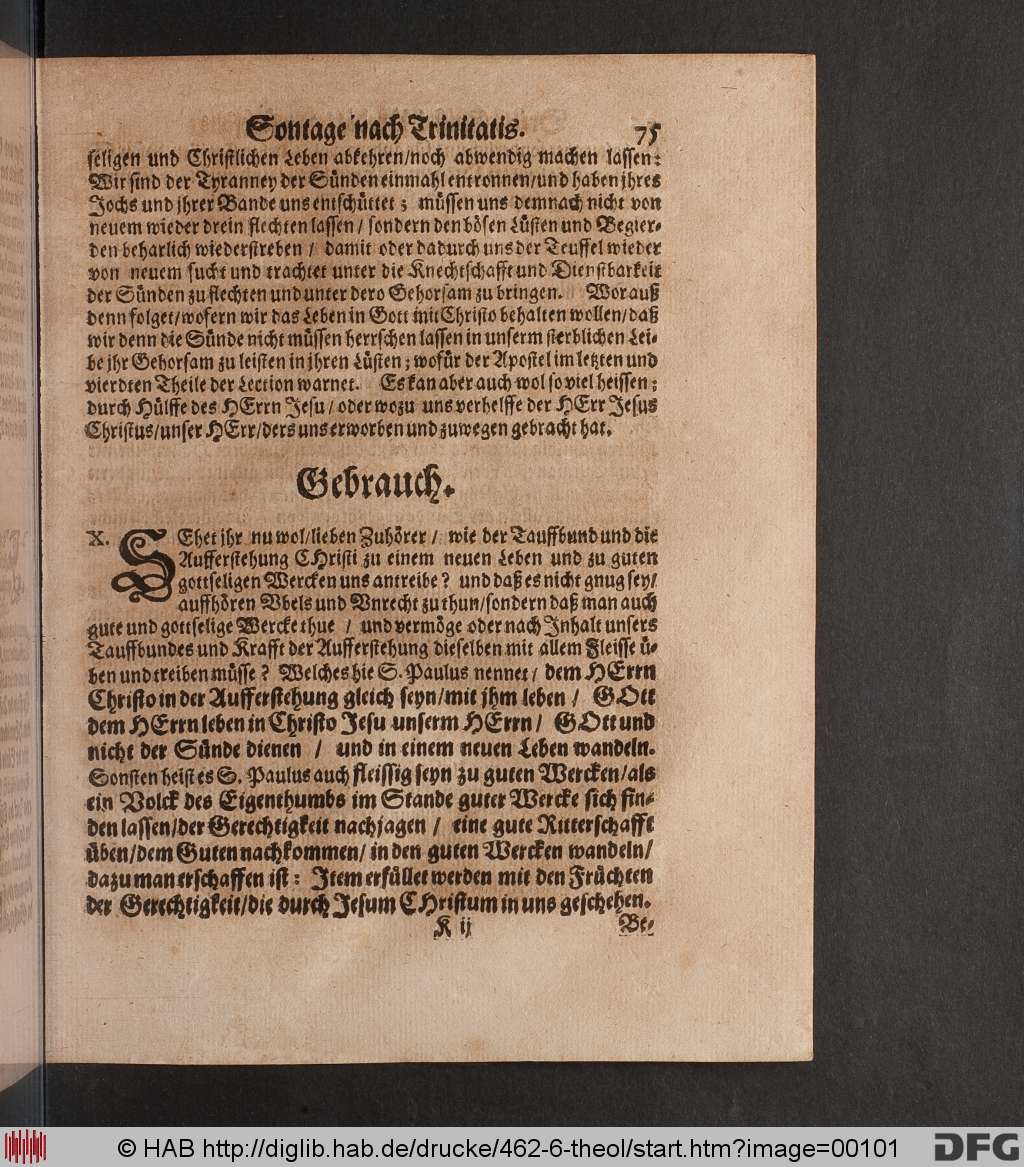 Sontage nach Trinitatis. 75
seligen und Christlichen Leben abkehren/noch abwendig machen lassen:
Wir sind der Tyranney der Sünden einmahl entronnen/und haben jhres
Jochs und jhrer Bande uns entschüttet; müssen uns demnach nicht von
neuem wieder drein flechten lassen/ sondern den bösen Lüsten und Begier-
den beharlich wiederstreben/ damit oder dadurch uns der Teuffel wieder
von neuem sucht und trachtet unter die Knechtschafft und Dienstbarkeit
der Sünden zu flechten und unter dero Gehorsam zu bringen. Worauß
denn folget/wofern wir das Leben in Gott mit Christo behalten wollen/daß
wir denn die Sünde nicht müssen herrschen lassen in unserm sterblichen Lei-
be jhr Gehorsam zu leisten in jhren Lüsten; wofür der Apostel im letzten und
vierdten Theile der Lection warnet. Es kan aber auch wol so viel heissen;
durch Hülffe des HErrn Jesu/ oder wozu uns verhelffe der HErr Jesus
Christus/unser HErr/ders uns erworben und zuwegen gebracht hat.
Gebrauch.
X. SEhet jhr nu wol/lieben Zuhörer/ wie der Tauffbund und die
Aufferstehung CHristi zu einem neuen Leben und zu guten
gottseligen Wercken uns antreibe? und daß es nicht gnug sey/
auffhören Vbels und Vnrecht zu thun/sondern daß man auch
gute und gottselige Wercke thue / und vermöge oder nach Inhalt unsers
Tauffbundes und Krafft der Aufferstehung dieselben mit allem Fleisse ü-
ben und treiben müsse? Welches hie S. Paulus nennet/ dem HErrn
Christo in der Aufferstehung gleich seyn/mit jhm leben/ GOtt
dem HErrn leben in Christo Jesu unserm HErrn/ GOtt und
nicht der Sünde dienen / und in einem neuen Leben wandeln.
Sonsten heist es S. Paulus auch fleissig seyn zu guten Wercken/als
ein Volck des Eigenthumbs im Stande guter Wercke sich fin-
den lassen/der Gerechtigkeit nachjagen / eine gute Ritterschafft
üben/dem Guten nachkommen/ in den guten Wercken wandeln/
dazu man erschaffen ist: Item erfüllet werden mit den Früchten
der Gerechtigkeit/die durch Jesum CHristum in uns geschehen.
K ij Be-
© HAB http://diglib.hab.de/drucke/462-6-theol/start.htm?image=00101 DFG